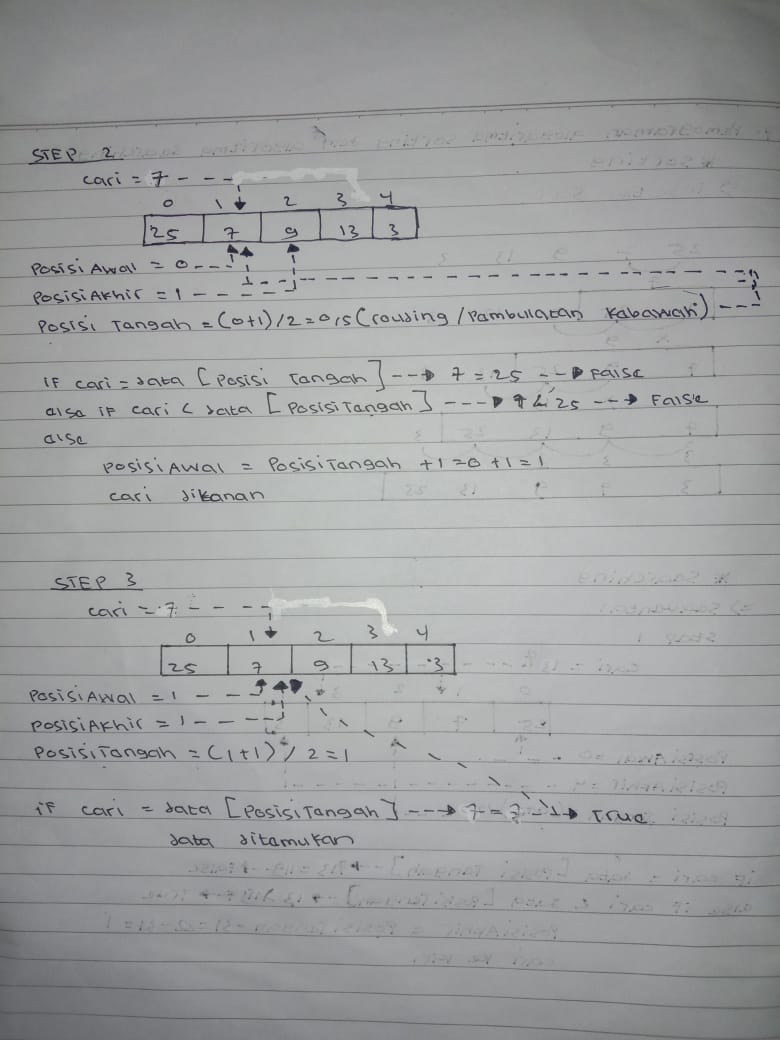 STEP 2
cari = 7
0 1 2 3 4
25 7 9 13 3
Posisi Awal = 0
Posisi Akhir = 1
Posisi Tangah = (0+1)/2=0,5 (rousing / Pambulatan kabawah)
if cari = data [Posisi Tangah] 7 = 25 False
alsa if cari < data [Posisi Tangah] 7 < 25 False
alsa
posisi Awal = Posisi Tangah +1=0+1=1
cari dikanan
STEP 3
cari = 7
0 1 2 3 4
25 7 9 13 3
Posisi Awal = 1
Posisi Akhir = 1
Posisi Tangah = (1+1) / 2=1
if cari = data [Posisi Tangah] 7 = 7 True
data ditamukan